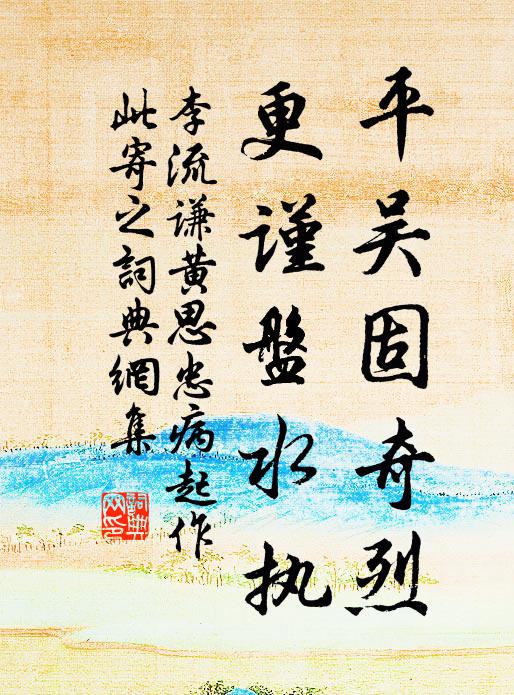 平吴固奇烈
更謹盤水执
李流謙黄思忠病起作
此寄之詞典網集
詞典
网印